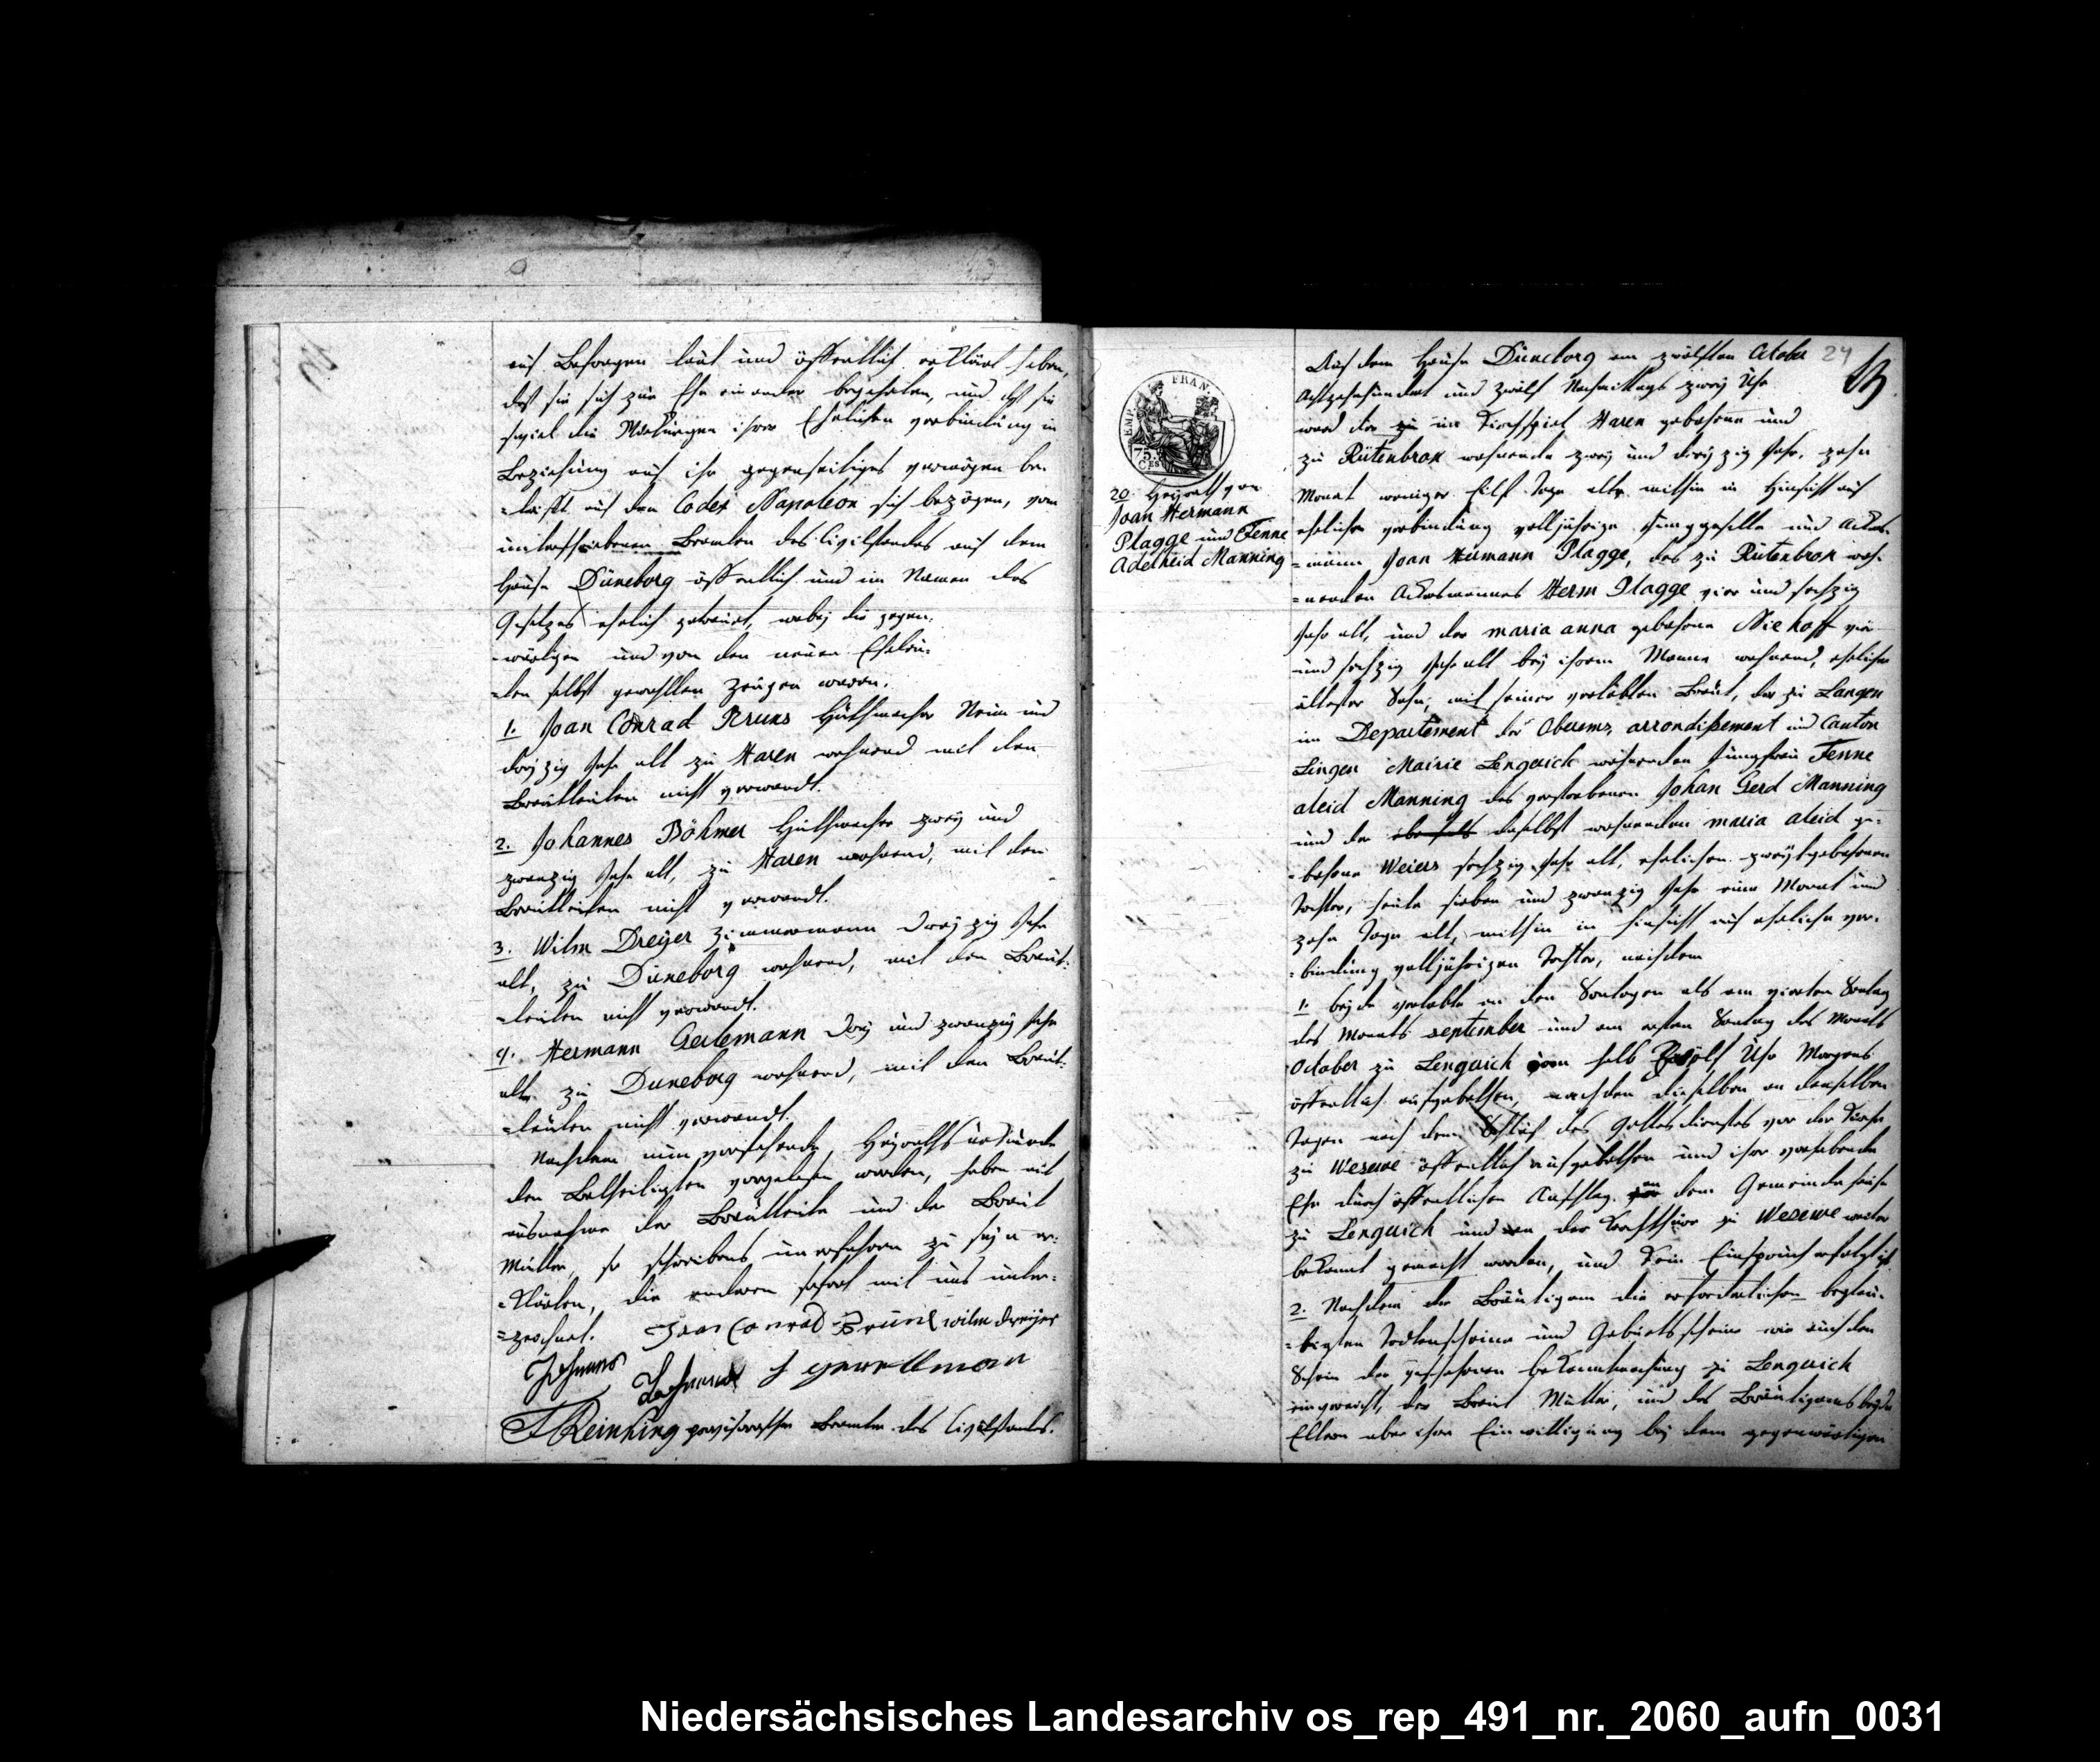 auf Befragen laut und öffentlich erklärt haben,
daß sie sich zur Ehe einander begehrten, und daß sie
soviel die Wirkungen ihrer Ehelichen verbindung in
Beziehung auf ihr gegenseitiges vermögen be-
=trifft auf den Codex Napoleon sich bezögen, vom
unterschriebenen Beamten des Civilstandes auf dem
Hause Düneborg öffentlich und im Namen des
Gesetzes ehelich getrauet, wobey die gegen-
=wärtigen und von den neuen Eheleu-
=ten selbst gewehlten Zeugen waren.
1. Joan Conrad Bruns Huthmacher Neun und
dreyzig Jahr alt zu Haren wohnend mit den
Brautleuten nicht verwandt.
2. Johannes Böhmer Huthmacher zwey und
zwanzig Jahr alt, zu Haren wohnend, mit den
Brautleuten nicht verwandt.
3. Wilm Dreijer Zimmermann dreyzig Jahr
alt, zu Düneborg wohnend, mit den Braut-
=leuten nicht verwandt.
4. Hermann Gerlemann drey und zwanzig Jahr
alt zu Duneborg wohnend, mit den Braut-
=leuten nicht verwandt.
Nachdem nun vorstehende Heyraths urkunde
den Betheiligten vorgelesen worden, haben mit
ausnahme der Brautleute und der Braut
Mutter, so schreibens unerfahren zu seyn er-
=klärten, die anderen sofort mit uns unter-
=zeichnet. Joan Conrad Bruns wilm dreijer
Johannes
Reinking provisorischer Beamter des Civilstandes.
24
EMP. FRAN.
75.
Ces
20 Heyrath von
Joan Hermann
Plagge und Fenne
Adelheid Manning
Auf dem Hause Düneborg am zwölften October
Achtzehnhundert und zwölf Nachmittags zwey Uhr
ward der zu im Kirchspiel Haren gebohrne und
zu Rütenbrok wohnende zwey und dreyzig Jahr, zehn
Monat weniger Eilf Tage alte mithin in Hinsicht auf
eheliche verbindung volljährige Junggeselle und Acker-
=mann Joan Hermann Plagge, des zu Rütenbrok woh-
=nenden Ackersmannes Herm Plagge vier und sechzig
Jahr alt, und der maria anna gebohrne Niehoff vier
und sechzig Jahr alt bey ihrem Manne wohnend, ehelicher
ältester Sohn, mit seiner verlobten Braut, der zu Langen
im Departement der Oberems, arrondißement und Canton
Lingen Mairie Lengerich wohnenden Jungfrau Fenne
aleid Manning des verstorbenen Johan Gerd Manning
und der ebenfals daselbst wohnenden maria aleid ge-
=bohrne Weiers sechzig Jahr alt, ehelichen zweytgebohrenen
Tochter, heute sieben und zwanzig Jahr eine Monat und
zehn Tage alt, mithin in hinsicht auf eheliche ver-
=bindung volljährigen Tochter, nachdem
1. beyde verlobte an den Sontagen als am vierten Sontag
des Monats september und am ersten Sontag des Monats
October zu Lengerich um halb Zwölf Uhr Morgens
öffentlich aufgebothen, nachdem dieselben an denselben
Tagen nach dem Schluß des Gottesdienstes vor der Kirche
zu Wesuwe öffentlich aufgebothen und ihre vorhabende
Ehe durch öffentlichen Anschlag an dem Gemeindehause
zu Lengerich und an der Kirchthüre zu Wesuwe weiter
bekannt gemacht worden, und kein Einspruch erfolgt ist
2. Nachdem der Bräutigam die erforderlichen beglau-
=bigten Todtenscheine und Geburtsscheine wie auch den
Schein der geschehenen bekanntmachung zu Lengerich
eingereicht, der Braut Mutter, und des Bräutigams beyde
Eltern aber ihre Einwilligung bey dem gegenwärtigen
Niedersächsisches Landesarchiv os_rep_491_nr._2060_aufn_0031